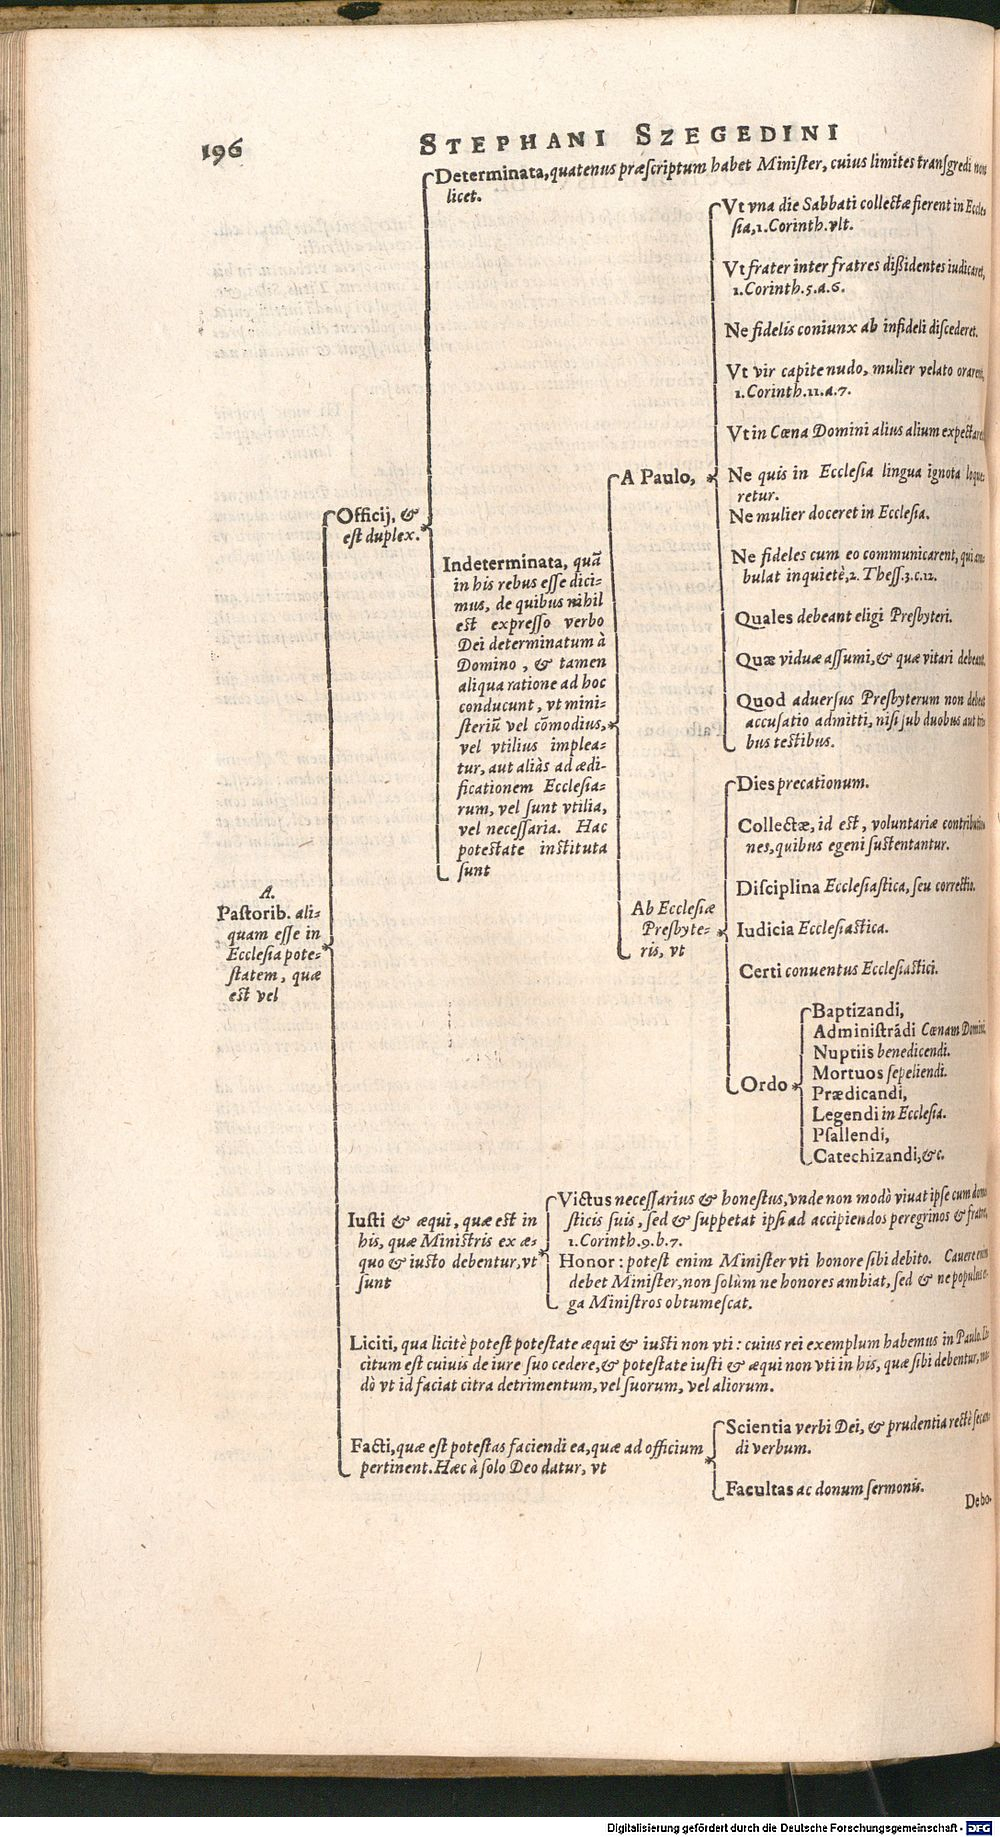 196
STEPHANI SZEGEDINI
Determinata, quatenus præscriptum habet Minister, cuius limites transgredi non
licet.
Vt vna die Sabbati collectæ fierent in Eccle-
sia, 1. Corinth. vlt.
Vt frater inter fratres dißidentes iudicaret,
1. Corinth. 5. a. 6.
Ne fidelis coniunx ab infideli discederet.
Vt vir capite nudo, mulier velato oraret,
1. Corinth. 11. a. 7.
Vt in Cœna Domini alius alium expectaret
A Paulo,
Ne quis in Ecclesia lingua ignota loque-
retur.
Ne mulier doceret in Ecclesia.
Ne fideles cum eo communicarent, qui am-
bulat inquietè, 2. Thess. 3. c. 12.
Quales debeant eligi Presbyteri.
Quæ viduæ assumi, & quæ vitari debeant.
Quod aduersus Presbyterum non debeat
accusatio admitti, nisi sub duobus aut tri-
bus testibus.
Officij, &
est duplex.
Indeterminata, quā
in his rebus esse dici-
mus, de quibus nihil
est expresso verbo
Dei determinatum à
Domino, & tamen
aliqua ratione ad hoc
conducunt, vt mini-
steriū vel cōmodius,
vel vtilius implea-
tur, aut aliàs ad ædi-
ficationem Ecclesia-
rum, vel sunt vtilia,
vel necessaria. Hac
potestate instituta
sunt
Dies precationum.
Collectæ, id est, voluntariæ contributio-
nes, quibus egeni sustentantur.
Disciplina Ecclesiastica, seu correctio.
Ab Ecclesiæ
Presbyte-
ris, vt
Iudicia Ecclesiastica.
Certi conuentus Ecclesiastici.
Ordo
Baptizandi,
Administrādi Cœnam Domini.
Nuptiis benedicendi.
Mortuos sepeliendi.
Prædicandi,
Legendi in Ecclesia.
Psallendi,
Catechizandi, &c.
A.
Pastorib. ali-
quam esse in
Ecclesia pote-
statem, quæ
est vel
Iusti & æqui, quæ est in
his, quæ Ministris ex æ-
quo & iusto debentur, vt
sunt
Victus necessarius & honestus, vnde non modò viuat ipse cum dome-
sticis suis, sed & suppetat ipsi ad accipiendos peregrinos & fratres,
1. Corinth. 9. b. 7.
Honor: potest enim Minister vti honore sibi debito. Cauere enim
debet Minister, non solùm ne honores ambiat, sed & ne populus er-
ga Ministros obtumescat.
Liciti, qua licitè potest potestate æqui & iusti non vti: cuius rei exemplum habemus in Paulo. Li-
citum est cuiuis de iure suo cedere, & potestate iusti & æqui non vti in his, quæ sibi debentur, mo-
dò vt id faciat citra detrimentum, vel suorum, vel aliorum.
Facti, quæ est potestas faciendi ea, quæ ad officium
pertinent. Hæc à solo Deo datur, vt
Scientia verbi Dei, & prudentia rectè secan-
di verbum.
Facultas ac donum sermonis.
Debo-
Digitalisierung gefördert durch die Deutsche Forschungsgemeinschaft - DFG